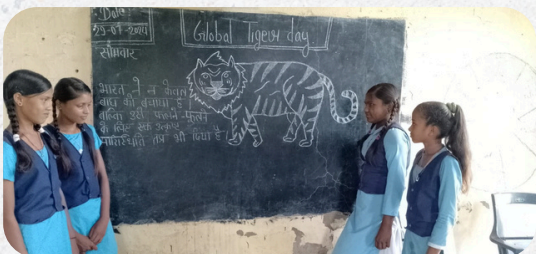 Date
29-07-2024
सोमवार
Global Tigers day
भारत ने न केवल
बाघ को बचाया है
बल्कि उसे फलने-फूलने
के लिए एक
पारिस्थितिकी तंत्र भी दिया है